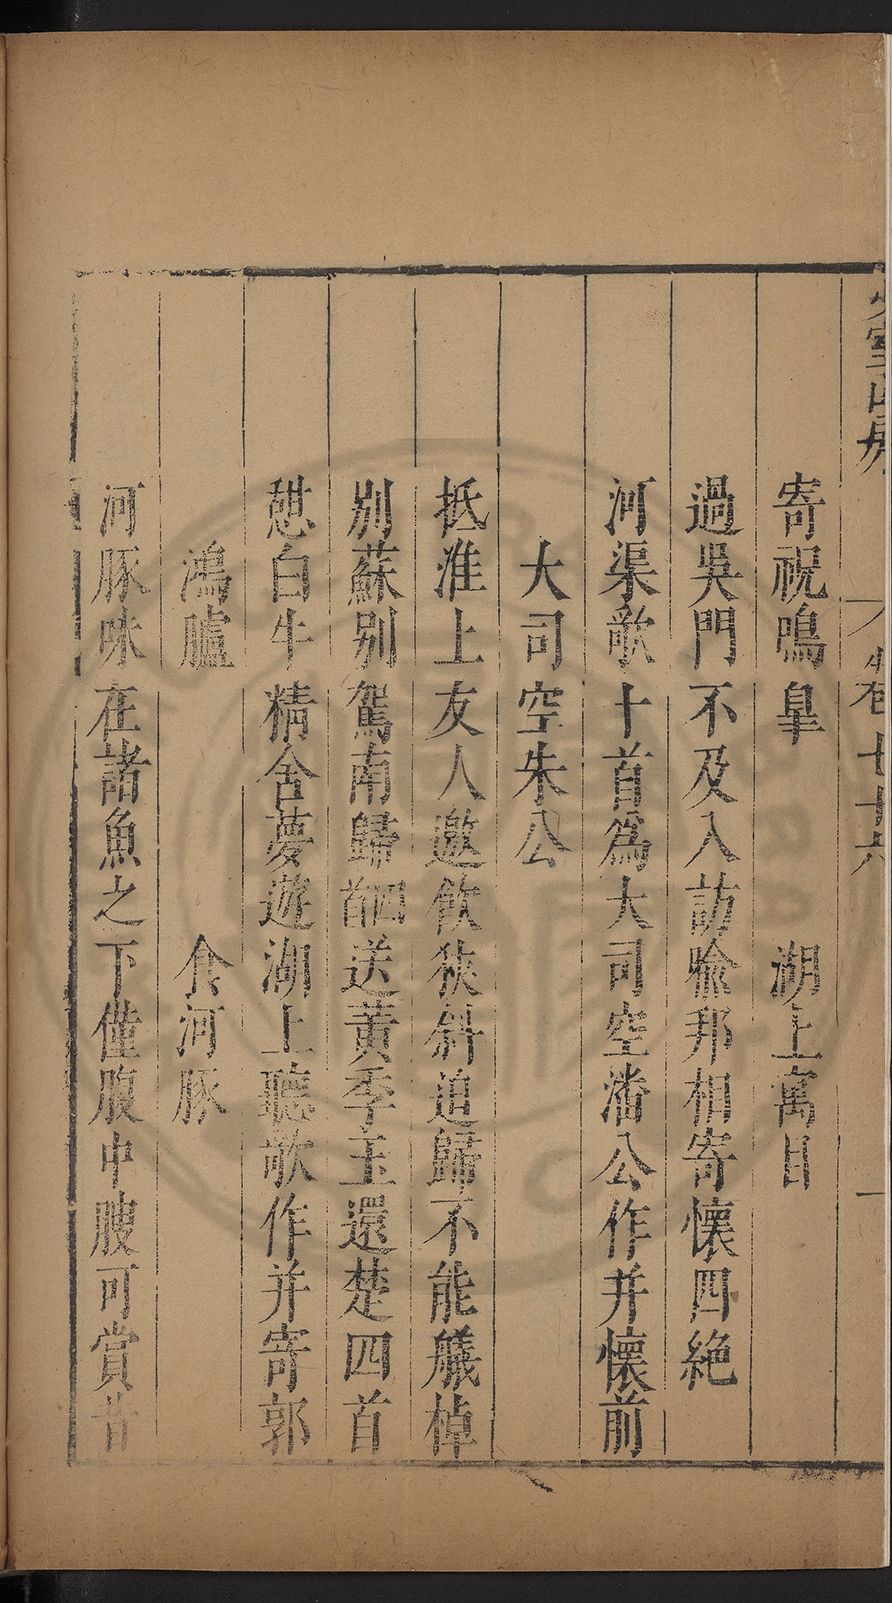 卷七十六 一
寄祝鳴臯 湖上寓目
過吳門不及入訪喩邦相寄懷四絶
河渠歌十首爲大司空潘公作并懷前
大司空朱公
抵淮上友人邀飲狹斜追歸不能艤棹
别蘇别駕南歸 送黄季主還楚四首
憇白牛精舍夢遊湖上聽歌作并寄郭
鴻臚 食河豚
河豚味在諸魚之下僅腹中腴可賞昔